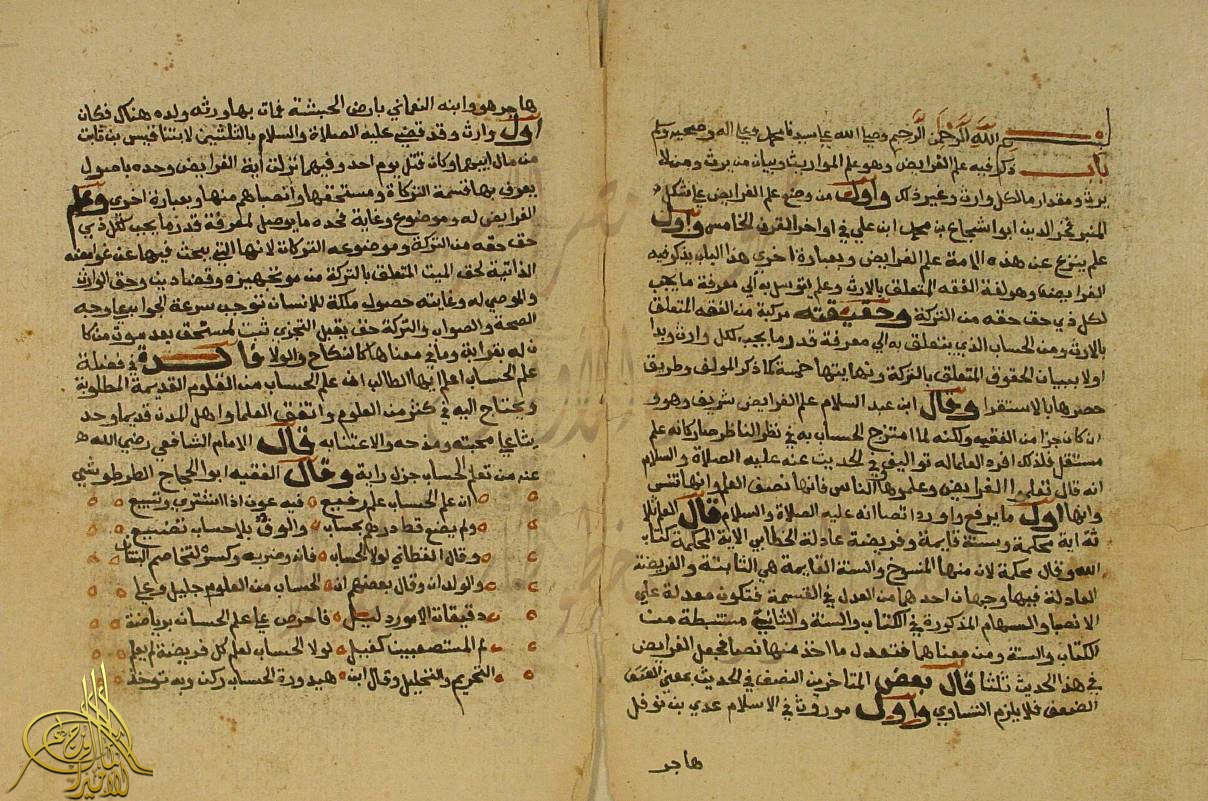 بسم الله الرحمن الرحيم وصلى الله على سيدنا محمد وعلى اله وصحبه وسلم
باب ذكر فيه علم الفرايض وهو علم المواريث وبيان من يرث ومن لا
يرث ومقدار ما لكل وارث وغير ذلك واول من وضع علم الفرايض على شكل
المنبر فخر الدين ابوا شجاع بن محمد ابن علي في اواخر القرن الخامس واول
علم ينزع عن هذه الامة علم الفرايض وبعبارة اخري هذا الباب يذكر فيه
الفرايض وهو لغة الفقه المتعلق بالارث وعلم يتوسل به الي معرفة ما يجب
لكل ذي حق حقه من التركة وحقيقته مركبة من الفقه المتعلق
بالارث ومن الحساب الذي يتعلق به الي معرفة قدر ما يجب لكل وارث وبدا
اولا ببيان الحقوق المتعلق بالتركة ونهايتها خمسة كما ذكر المولف وطريق
حصرها بالاستقرا وقال ابن عبد السلام علم الفرايض شريف وهو و
ان كان جزا من الفقيه ولكنه لما امتزج الحساب به في نظر الناظر صار كانه علم
مستقل فلذلك افرد العلما له تواليفو في الحديث عنه عليه الصلاة والسلام
انه قال تعلموا الفرايض وعلموها الناس فانها نصف العلم وانها تنسى
وانها اول ما يرفع واوردا تصا انه عليه الصلاة والسلام قال العلم ثلا
ثة اية محكمة وسنة قايمة وفريضة عادلة الخطابي الاية المحكمة كتاب
الله وقال محكمة لان منها المنسوخ والسنة القايمة هي الثابتة والفريضة
العادلة فيها وجهان احدهما من العدل في القسمة فتكون معدلة علي
الانصبا والسهام المذكورة في الكتاب والسنة والثاني مستنبطة من
الكتاب والسنة ومن معناها فتعدل ما اخذ منها نصا فجعل الفرايض
في هذ الحديث ثلثا قال بعض المتاخرين النصف في الحديث بمعني
الضعف فلا يلزم التساوي واول موروث في الاسلام عدي بن نوفل
هاجر
هاجر هو وابنه النعماني بارض الحبشة فمات بها ورثه ولده هناك فكان
اول وارث وقد قضى عليه الصلاة والسلام بالثلثين لابنتا قيس بن ثابت
من مال ابيهما وكان قتل يوم احد وفيهما نزلت اية الفرايض وحده باصول
يعرف بها قسمة التركاة ومستحقها وانصباهم منها وبعبارة اخري وعلم
الفرايض له وموضوع وغاية فحده ما يوصل لمعرفة قدر ما يجب لكل ذي
حق حقه من التركة وموضوعه التركات لانها التي يبحث فيها عن عوارضه
الذاتية لحق الميت المتعلق بالتركة من مون تجهيزه وقضاد دين وحق الوارث
والموصي له وغايته حصول ملكة للانسان توجب سرعة الجواب على وجه
الصحة والصواب والتركة حق يقبل التجزي ثبت لمستحق بعد موت من كا
ن له بقرابة وما في معناها كالنكاح والولا فائدة في فضلة
علم الحساب اعلم ايها الطالب ان علم الحساب من العلوم القديمة المطلوبة
ويحتاج اليه في كثر من العلوم واتفق العلما واهل المدن قديما وحد
يثا علي محبته ومدحه والاعتنا به قال الامام الشافعي رضي الله
عنه من تعلم الحساب جزل رايه وقال الفقيه ابوا الحجاج الطرطوشي
ان علم الحساب علم رفيع فيه عون اذا اشتري وتبيع
ولم يضع قط درهم بحساب والوف بلا حساب تضيع
وقال القطاني لولا الحساب فانه وضربه وكسره لتخاصم
والولدان وقال بعضهم ان الحساب من العلوم جليل وعلى
دقيقات الامور دليل فاحرص على علم الحسانه برياضة
لم المستصعبين كفيل لولا الحساب لعلم كل فريضة لم يعلم
التحريم والتحليل وقال ابن هيدورة الحساب ركن وبه توخذ